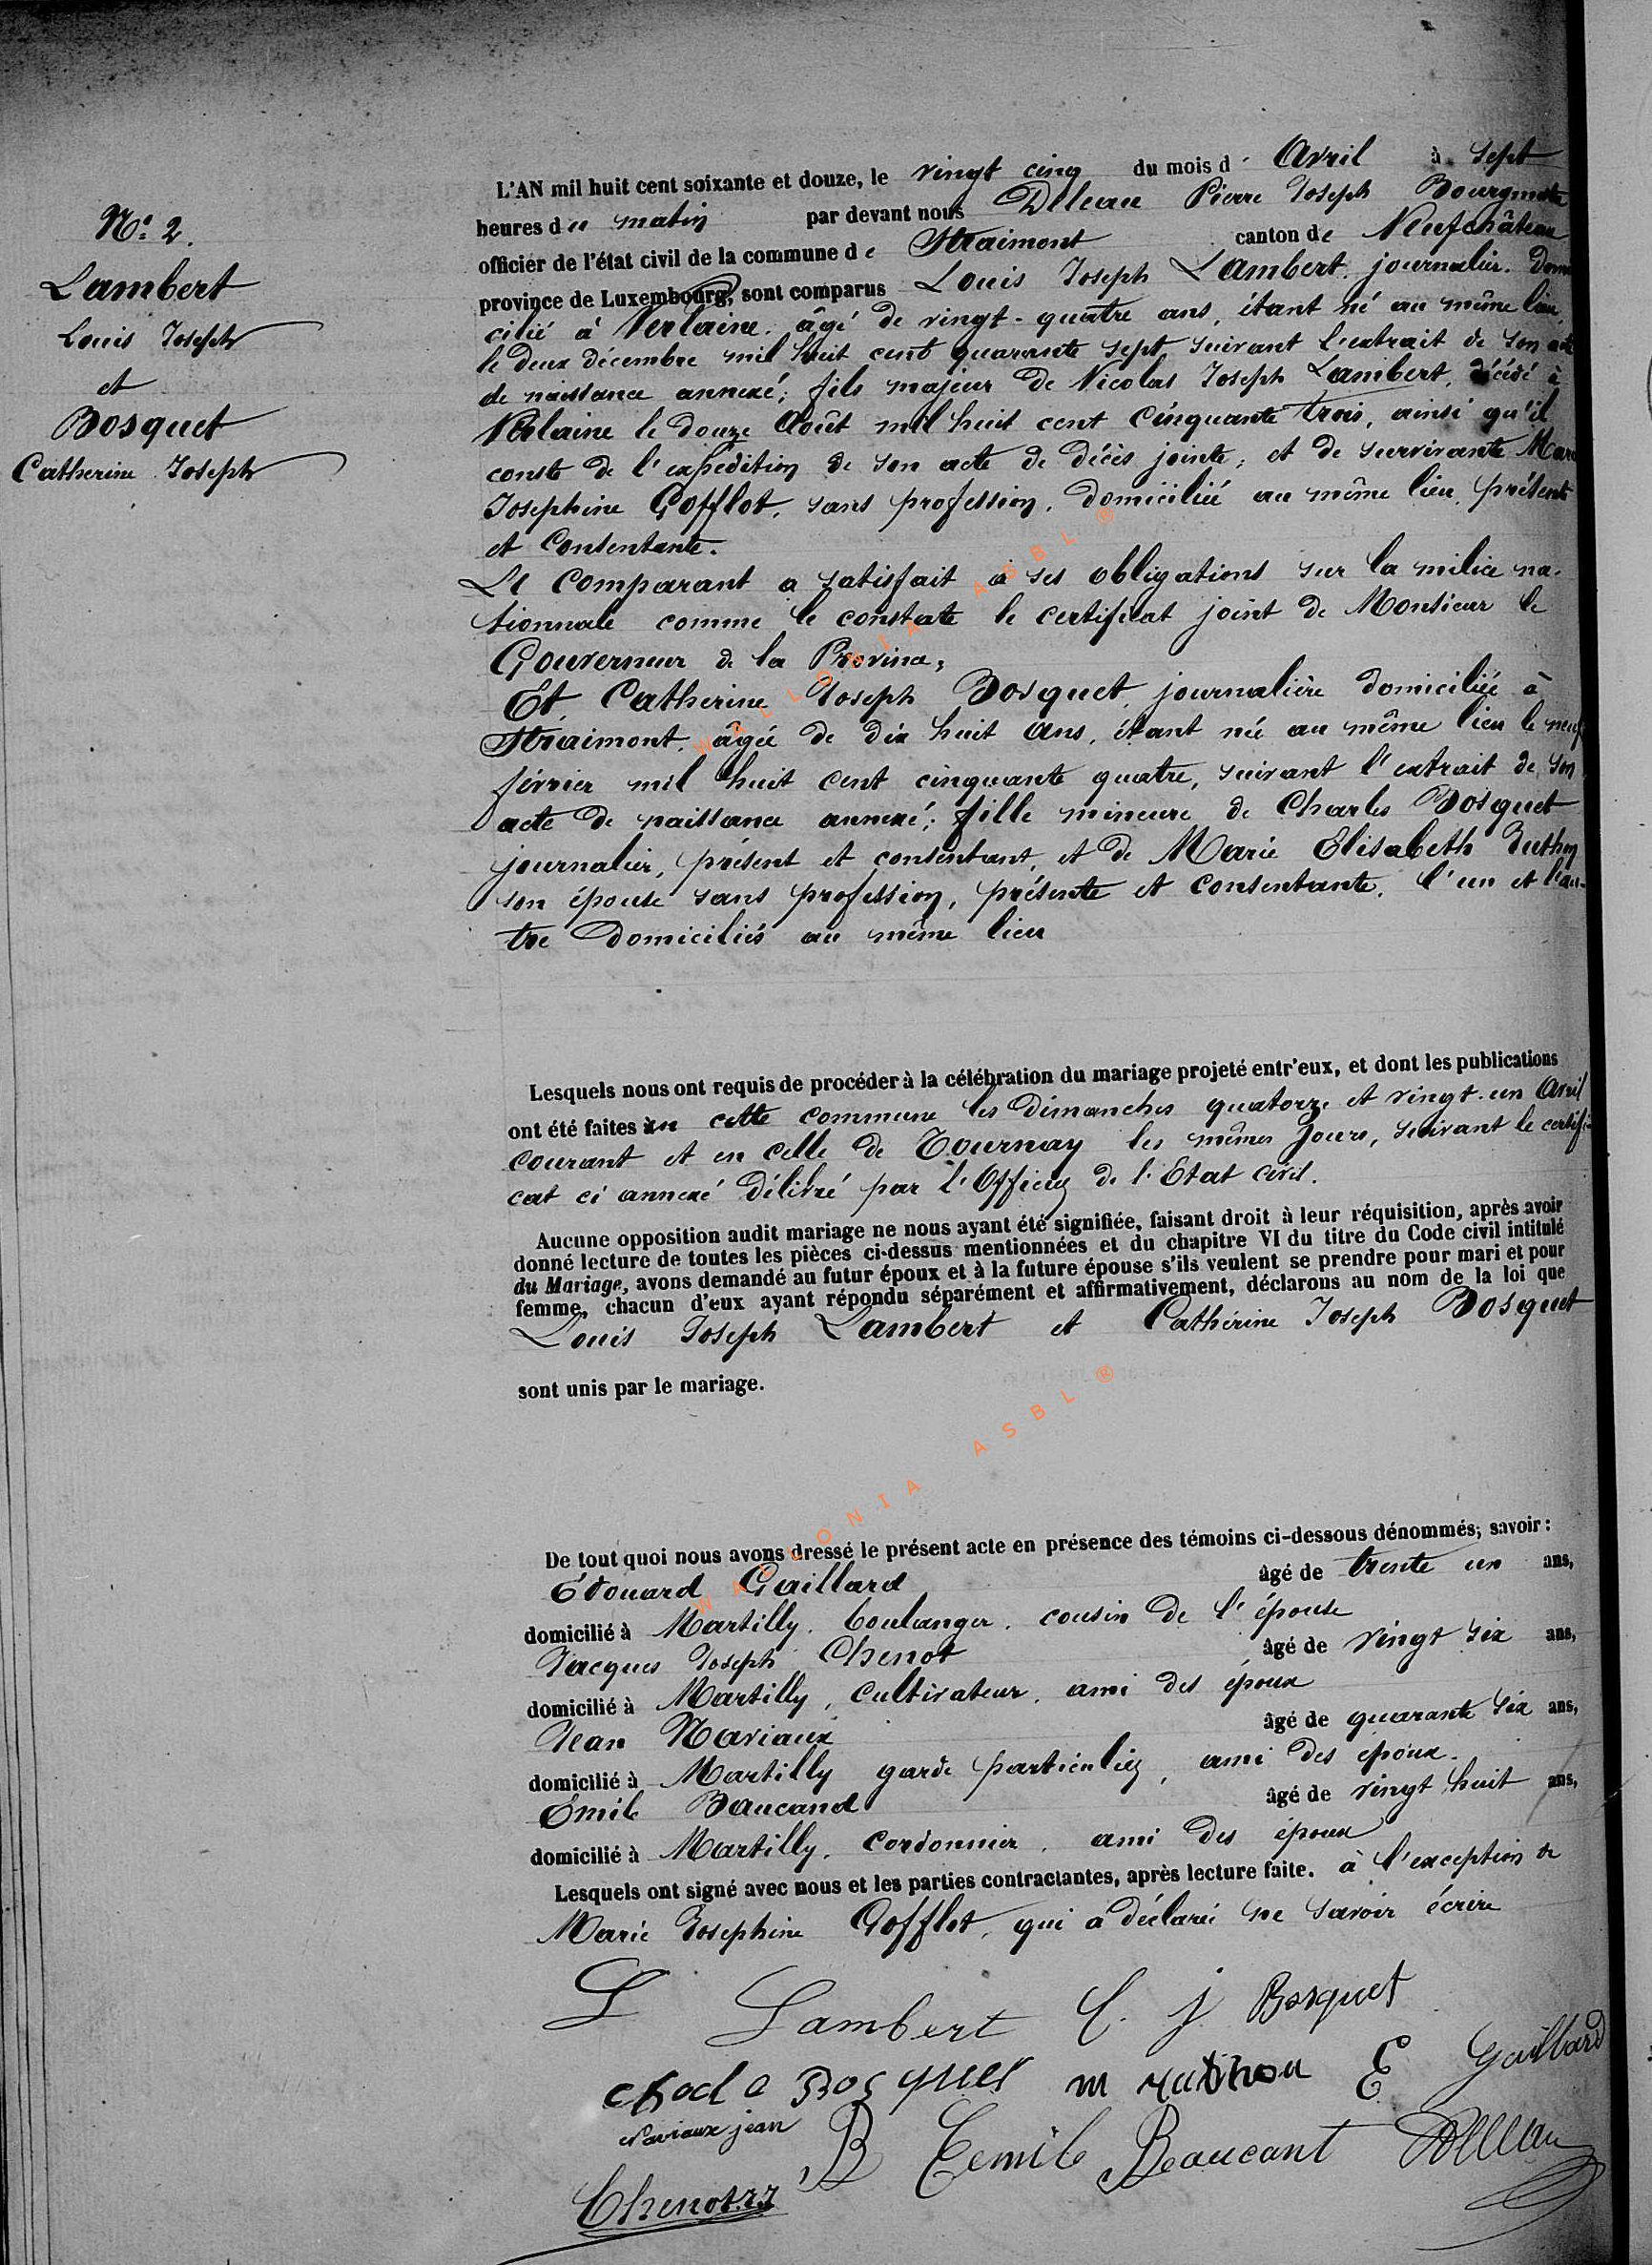 N.° 2.
Lambert
Louis Joseph
et
Bosquet
Catherine Joseph
L'AN mil huit cent soixante et douze, le vingt cinq du mois d' Avril à sept
heures du matin par devant nous Deleau Pierre Joseph Bourgmestre
officier de l'état civil de la commune de Straimont canton de Neufchâteau
province de Luxembourg, sont comparus Louis Joseph Lambert, journalier, domi
cilié à Verlaine, âgé de vingt-quatre ans, étant né au même lieu,
le deux décembre mil huit cent quarante sept suivant l'extrait de son acte
de naissance annexé; fils majeur de Nicolas Joseph Lambert, décédé à
Verlaine le douze Août mil huit cent cinquante trois, ainsi qu'il
conste de l'expédition de son acte de décès jointe; et de survivante Marie
Josephine Gofflot, sans profession, domiciliée au même lieu, présente
et consentante.
Le comparant a satisfait à ses obligations sur la milice na-
tionnale comme le constate le certificat joint de Monsieur le
Gouverneur de la Province,
Et Catherine Joseph Bosquet, journalière domiciliée à
Straimont, âgée de dix huit ans, étant née au même lieu le neuf
février mil huit cent cinquante quatre, suivant l'extrait de son
acte de naissance annexé; fille mineure de Charles Bosquet
journalier, présent et consentant, et de Marie Elisabeth
son épouse sans profession, présente et consentante, l'un et l'au-
tre domiciliés au même lieu
Lesquels nous ont requis de procéder à la célébration du mariage projeté entr'eux, et dont les publications
ont été faites en cette commune les dimanches quatorze et vingt-un Avril
courant et en celle de Tournay les mêmes jours, suivant le certifi-
cat ci annexé délivré par l'Officier de l'Etat civil.
Aucune opposition audit mariage ne nous ayant été signifiée, faisant droit à leur réquisition, après avoir
donné lecture de toutes les pièces ci-dessus mentionnées et du chapitre VI du titre du Code civil intitulé
du Mariage, avons demandé au futur époux et à la future épouse s'ils veulent se prendre pour mari et pour
femme, chacun d'eux ayant répondu séparément et affirmativement, déclarons au nom de la loi que
Louis Joseph Lambert et Cathérine Joseph Bosquet
sont unis par le mariage.
De tout quoi nous avons dressé le présent acte en présence des témoins ci-dessous dénommés; savoir:
Edouard Gaillard âgé de trente un ans,
domicilié à Martilly, boulanger, cousin de l'épouse
Jacques Joseph Chenot âgé de vingt six ans,
domicilié à Martilly, cultivateur, ami des époux
Jean Naviaux âgé de quarante six ans,
domicilié à Martilly garde particulier, ami des époux.
Emile Baucand âgé de vingt huit ans,
domicilié à Martilly, cordonnier, ami des époux
Lesquels ont signé avec nous et les parties contractantes, après lecture faite. à l'exception de
Marie Josephine Gofflot, qui a déclaré ne savoir écrire
L Lambert C. J Bosquet
Bosquet m E Gaillard
Naviaux jean B Eemile Beaucant Deleau
Chenot
WALLONIA ASBL ®
WALLONIA ASBL ®